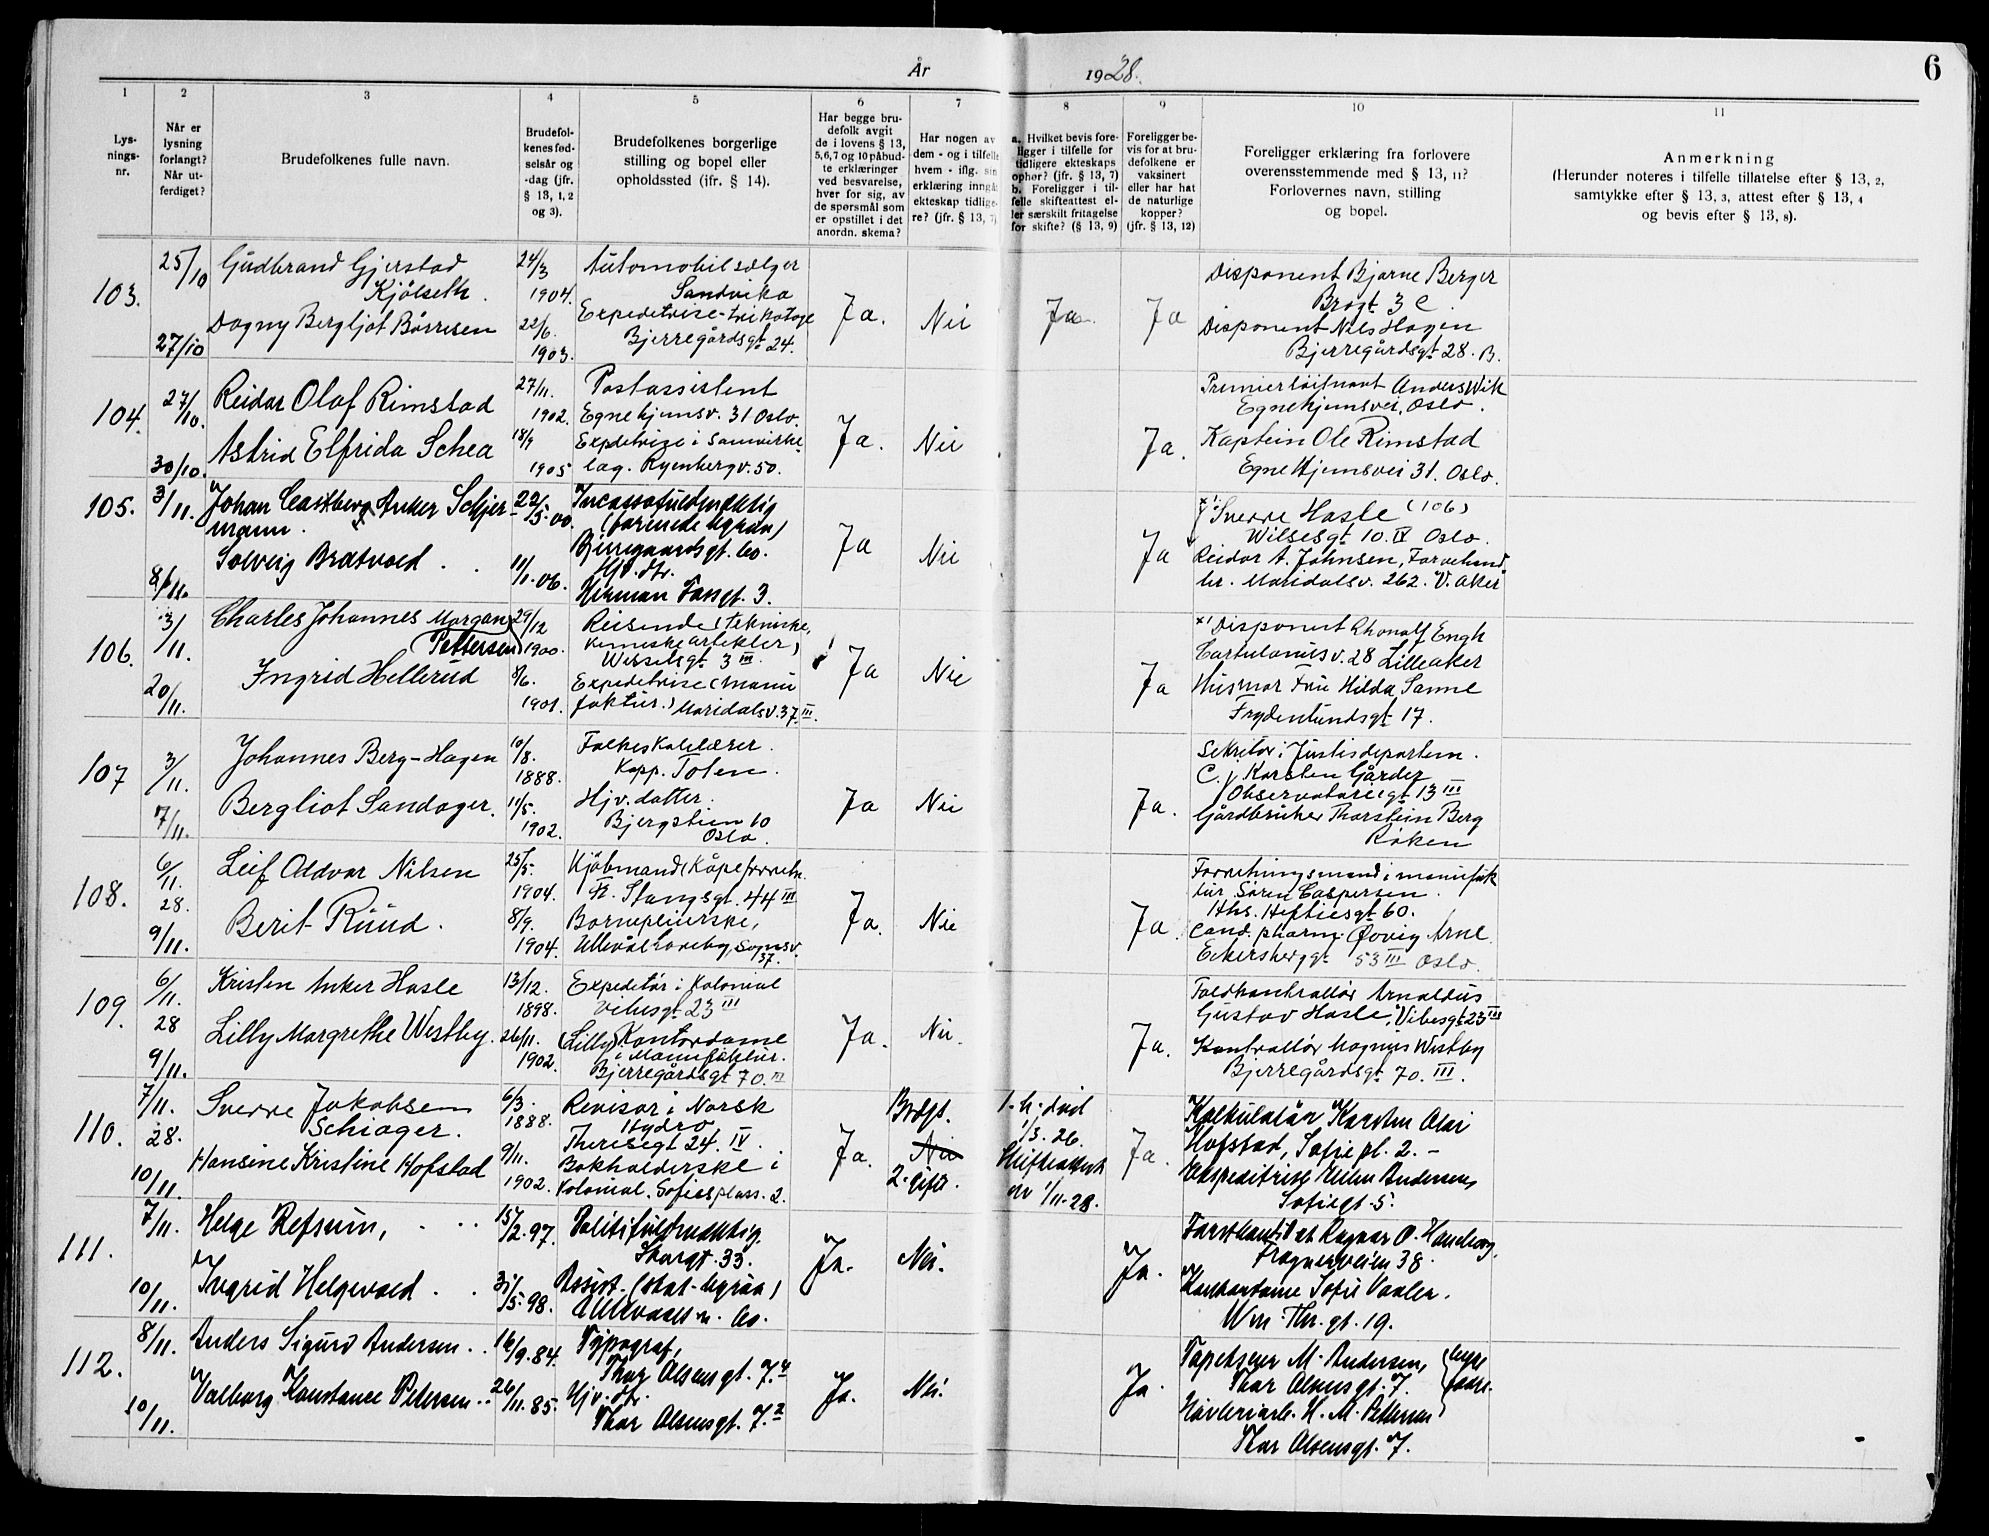 År 1928.
6
1 2 3 4 5 6 7 8 9 10 11
Lys-
nings-
nr.
Når er
lysning
forlangt?
Når ut-
ferdiget?
Brudefolkenes fulle navn.
Brudefol-
kenes fød-
selsår og
-dag (jfr.
§ 13, 1, 2
og 3).
Brudefolkenes borgerlige
stilling og bopel eller
opholdssted (ifr. § 14).
Har begge bru-
defolk avgit
de i lovens § 13,
5,6,7 og 10 påbud-
te erklæringer
ved besvarelse,
hver for sig, av
de spørsmål som
er opstillet i det
anordn. skema?
Har nogen av
dem - og i tilfelle
hvem - iflg. sin
erklæring inngåt
ekteskap tidlige-
re? (jfr. § 13, 7)
a. Hvilket bevis fore-
ligger i tilfelle for
tidligere ekteskaps
ophør? (jfr. § 13, 7)
b. Foreligger i til-
felle skifteattest el-
ler særskilt fritagelse
for skifte? (§ 13, 9)
Foreligger be-
vis for at bru-
defolkene er
vaksinert
eller har hat
de naturlige
kopper?
(jfr. § 13, 12)
Foreligger erklæring fra forlovere
overensstemmende med § 13, 11?
Forlovernes navn, stilling
og bopel.
Anmerkning
(Herunder noteres i tilfelle tillatelse efter § 13, 2,
samtykke efter § 13, 3, attest efter § 13, 4
og bevis efter § 13, 8).
103.
25/10
27/10
Gudbrand Gjerstad
Kjölseth.
Dagny Bergljot Börresen
24/3
1904.
22/6.
1903.
Automobilselger
Sandvika
Expeditrise-trikotage
Bjerregårdsgt 24.
Ja.
Nei
Ja.
Ja
Disponent Bjarne Berger
Brogt 3 C
Disponent Nils Hagen
Bjerregårdsgt 28. B.
104.
27/10.
30/10.
Reidar Olaf Rimstad
Astrid Elfrida Schea
27/11.
1902.
18/9
1905
Postassistent
Egnehjemsv. 31 Oslo.
Expeditrise i Samvirke-
lag. Ryenbergv. 50.
Ja.
Nei
Ja.
Premierløitnant Anders Wik
Egnehjemsvei, Oslo.
Kaptein Ole Rimstad
Egne Hjemsvei 31. Oslo.
105.
3/11.
8/11.
Johan Castberg Anker Schjer-
mann.
Solveig Bratvold.
22/5.00.
11/1.06.
Incassofuldmektig
Bjerregaardsgt. 60.
Hjv. dtr.
Herman Fossgt. 3.
Ja
Nei
Ja
x) Sverre Hasle (106)
Wilsesgt 10. IV Oslo.
Reidar A. Johnsen, Farvehand-
ler. Maridalsv. 262. V. Aker
106.
3/11.
20/11.
Charles Johannes Morgan
Pettersen
Ingrid Hellerud
29/12
1900.
8/6.
1901.
Reisende (Tekniske,
kemiske artikler)
Wesselsgt 3 III.
Expeditrise (manu
faktur.) Maridalsv. 37. III.
Ja
Nei
Ja
x) Disponent Rhonalf Engh
28 Lilleaker
Husmor Fru Hilda Sanne
Frydenlundsgt 17.
107
3/11.
7/11.
Johannes Berg-Hagen
Bergliot Sandager.
10/8.
1888.
11/5.
1902.
Folkeskolelærer.
Kapp. Toten.
Hjv. datter.
Bjergstien 10
Oslo.
Ja
Nei
Ja.
Sekretær i Justisdepartem.
C. J. Karsten Gårder
Observatoriegt 13 III
Gårdbruker Thorstein Berg
Røken
108.
6/11.
28.
9/11.
Leif Oddvar Nilsen
Berit Ruud.
25/5.
1904.
8/9.
1904.
Kjöbmand (Kåpeforretn.
Fr. Stangsgt. 44 III
Barnepleierske,
Ullevål Haveby, Sognsv.
37.
Ja.
Nei
Ja.
Forretningsmand i manufak
tur Sören Caspersen.
Ths. Heftiesgt 60.
Cand. pharm. Öivig Arne
Eckersbergsgt 53 III Oslo.
109.
6/11.
28
9/11.
Kristen Anker Hasle
Lilly Margrethe Westby.
13/12.
1898.
26/11.
1902.
Expeditör i Kolonial
Vibesgt 23 III
(Lilly) Kontordame
i Manufaktur.
Bjerregårdsgt 70. III
Ja.
Nei.
Ja.
Toldkontrollör Arnoldus
Gustav Hasle, Vibesgt 23 III
Kontrollör Magnus Westby
Bjerregårdsgt 70. III.
110.
7/11.
28.
10/11.
Sverre Jakobsen
Schiager.
Hansine Kristine Hofstad
6/3.
1888.
9/11.
1902.
Revisor i Norsk
Hydro
Theresegt 24. IV.
Bokholderske i
Kolonial. Sofiesplass. 2.
Ja.
Brdgt.
Nei
2. gift.
1. h. död
1/3. 26.
Skifteattest
av 1/11-28.
Ja.
Kalkulatör Karsten Olai
Hofstad, Sofiepl. 2. -
Ekspeditrise Ellen Andersen,
Sofiegt 5.
111.
7/11.
10/11.
Helge Refsum,
Ingrid Helgevold.
15/2.97.
31/5.98.
Politifuldmektig.
33.
Assist. (stat-
Ullevaalsv. 60.
Ja.
Nei.
Ja.
Forstkandidat Ragnar O. Haneborg.
Frognerveien 38.
Kontordame Sofie Vaaler.
Wm. Thr. gt. 19.
112.
8/11.
10/11.
Anders Sigurd Andersen.
Valborg Konstance Petersen.
16/9.84.
26/11.85.
Typograf,
Thor Olsens gt. 7.4
Hjv. dtr.
Thor Olsensgt. 7.2
Ja.
Nei.
Ja.
Tapetserer M. Andersen,
Thor Olsensgt. 7.
H. M. Pettersen
Thor Olsensgt. 7.